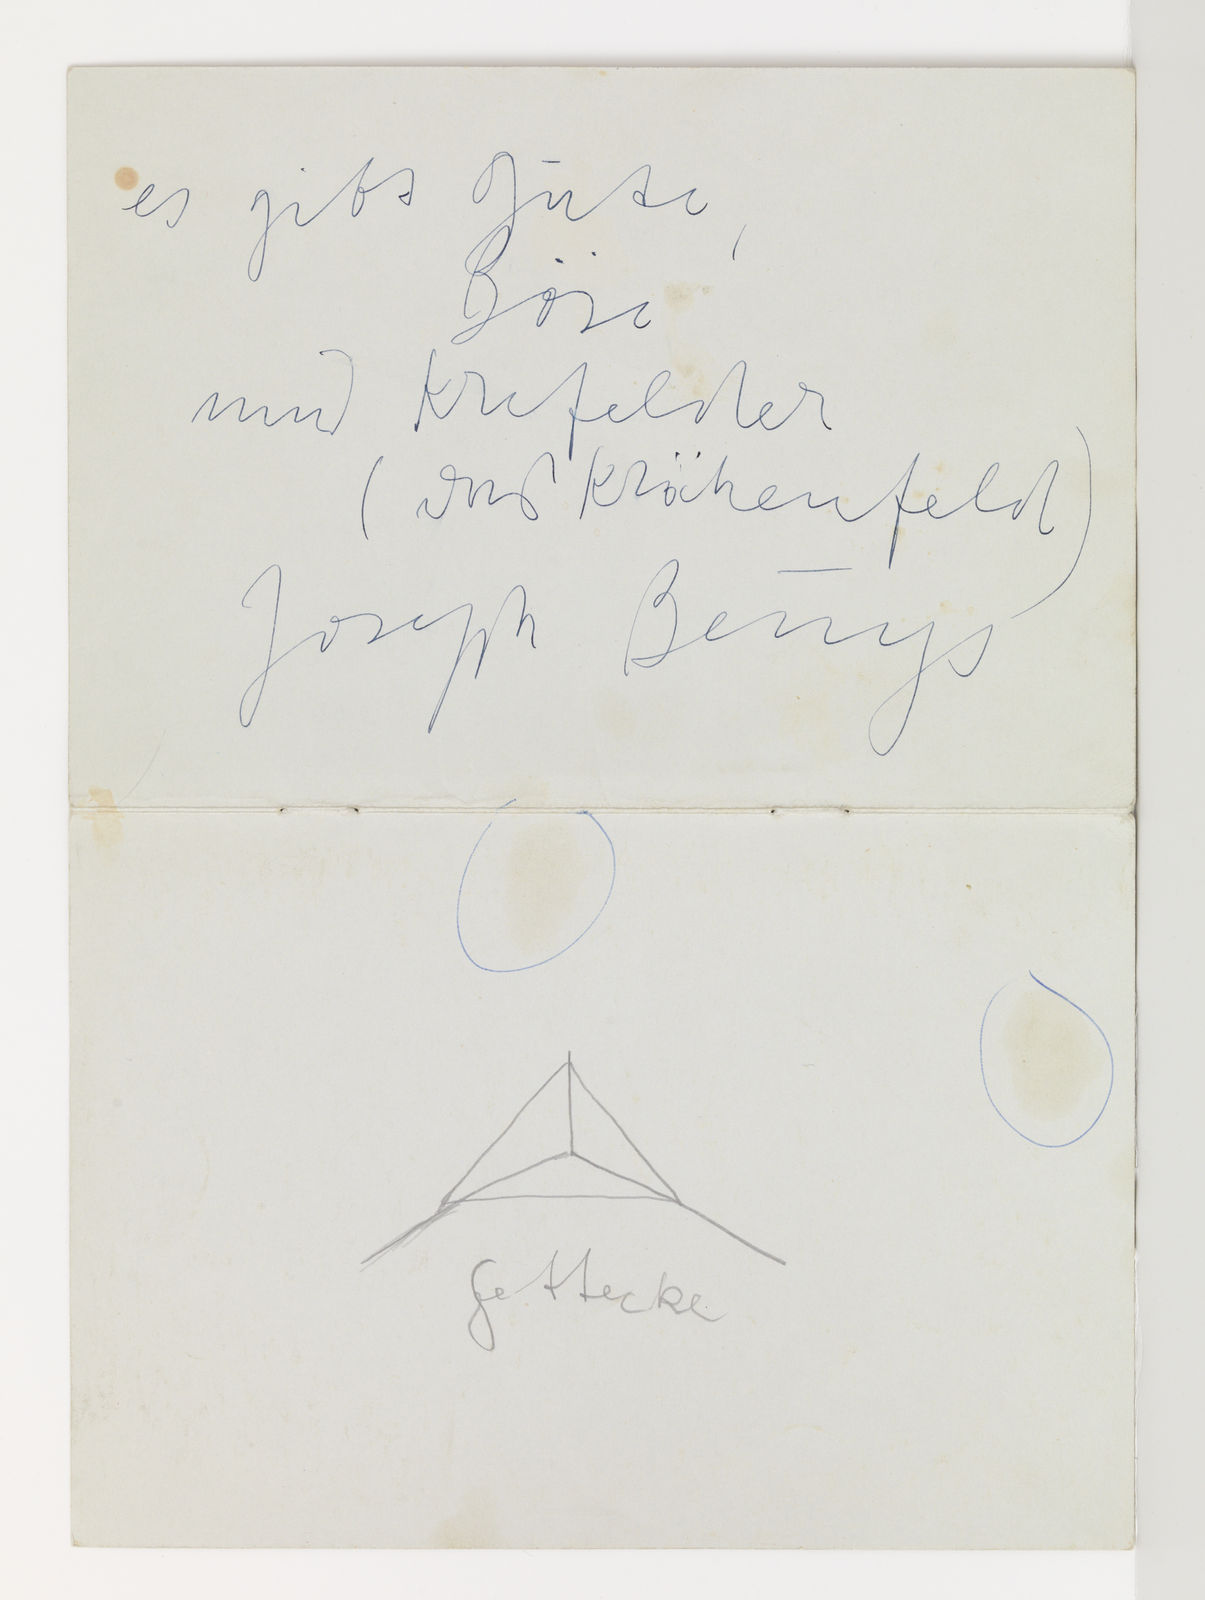 es gibt Gute,
Böse
und Krefelder
(das Krähenfeld)
Joseph Beuys
Fettecke